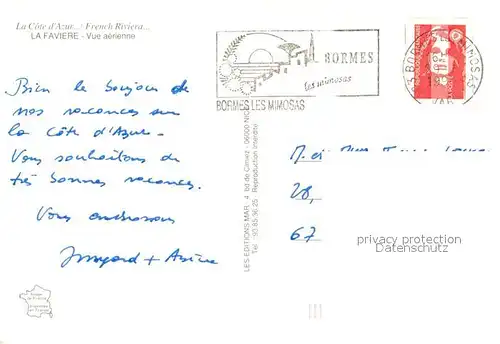 La Côte d'Azur... French Riviera...
LA FAVIERE - Vue aérienne
BORMES
les mimosas
BORMES LES MIMOSAS
Bien le bonjour de
nos vacances sur
la Côte d'Azur.
Vous souhaitons de
très bonnes vacances.
Vous embrassons
Irmgard +
LES EDITIONS MAR, 4 bd de Cimiez - 06000 NICE
Tél. 93.85.36.25 Reproduction interdite
28,
67
privacy protection
Datenschutz